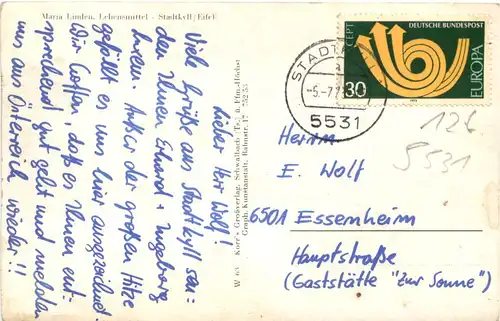 Maria Linden, Lebensmittel - Stadtkyll/Eifel
Lieber Herr Wolf!
Viele Grüße aus Stadtkyll sen=
den Ihnen Erhard + Ingeborg
Außer der großen Hitze
gefällt es uns hier ausgezeichnet.
Wir hoffen, daß es Ihnen ent-
sprechend gut geht und melden
uns aus Österreich wieder!!
W 63 Korr's Großverlag, Schwalbach
Graph. Kunstanstalt, Bahnstr. 17
DEUTSCHE BUNDESPOST
CEPT
EUROPA
30
STADTKYLL
a
-5.-7.7
5531
126
5531
Herrn
E. Wolf
6501 Essenheim
Hauptstraße
(Gaststätte "Zur Sonne")